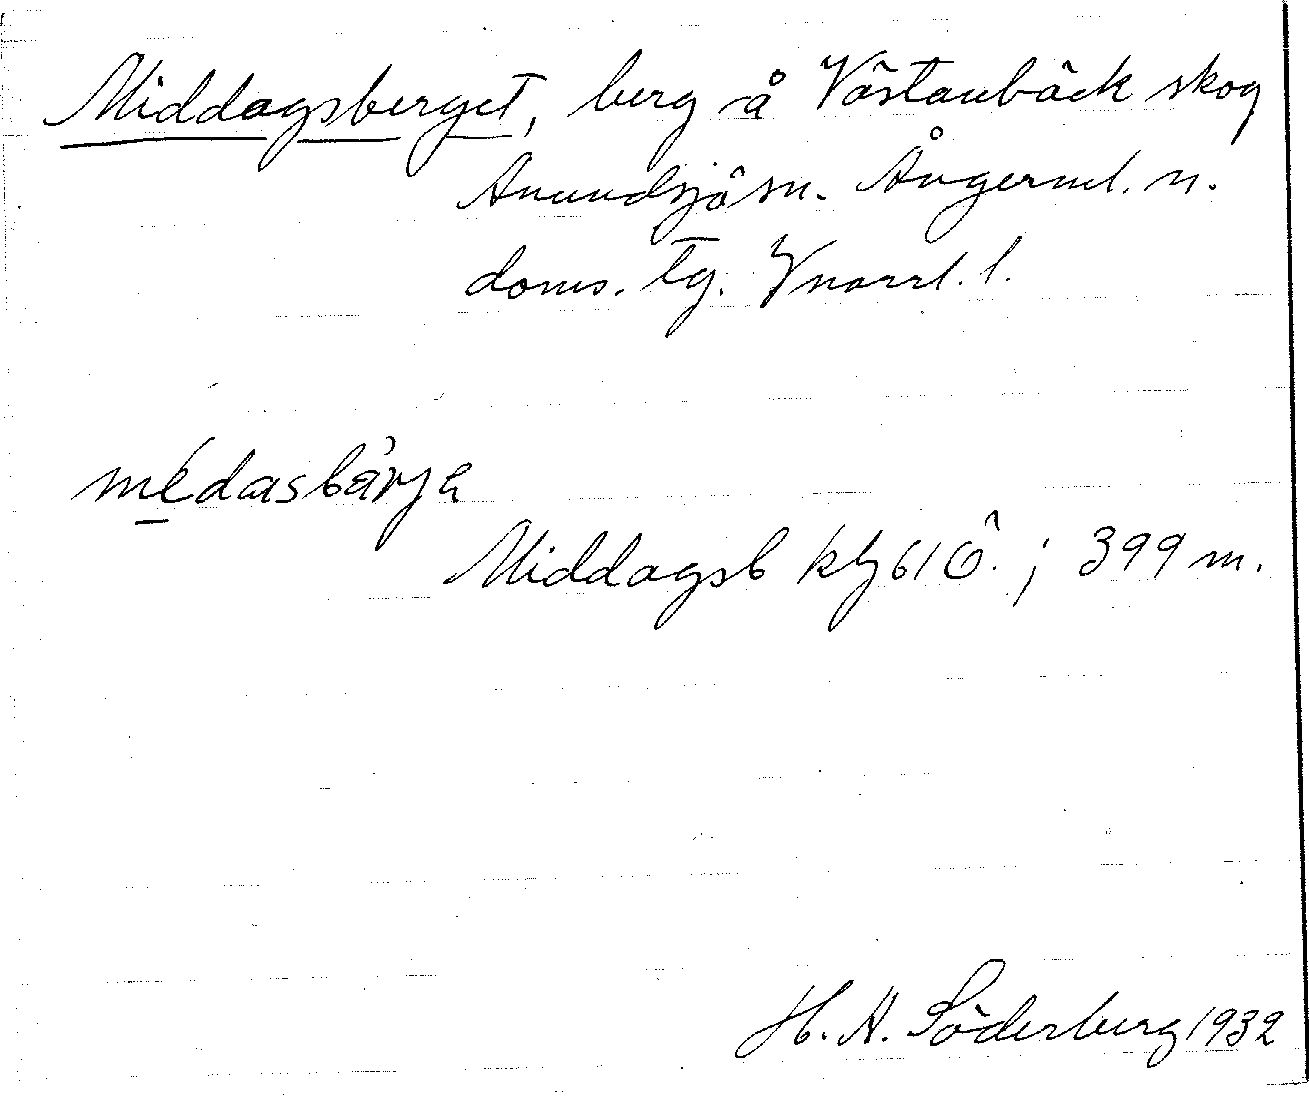 Middagsberget, berg å Västanbäck skog
Anundsjö sn. Ångerml. n.
doms. tg. Vnorrl. l.
médasbärja
Middagsb kbl 61 Ö. ; 399 m.
H. A. Söderberg 1932